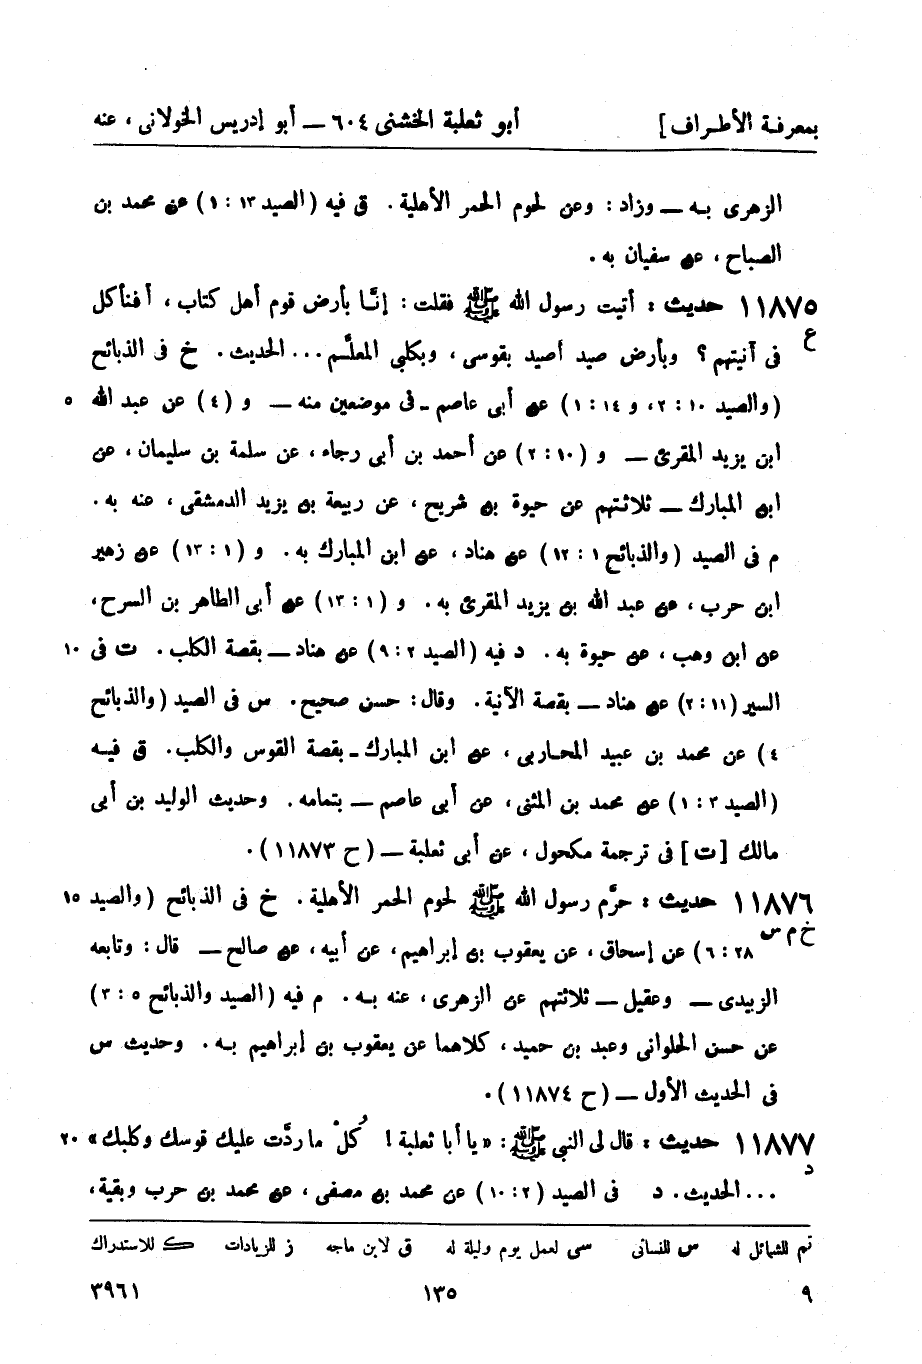 بمعرفة الأطراف] أبو ثعلبة الخشنى ٦٠٤ — أبو إدريس الخولانى ، عنه
الزهرى به — وزاد : وعن لحوم الحمر الأهلية . ق فيه (الصيد ١٣ : ١) عن محمد بن
الصباح ، عن سفيان به .
١١٨٧٥ حديث : أتيت رسول الله ﷺ فقلت : إنَّا بأرض قوم أهل كتاب ، أفنأكل
ع
فى آنيتهم ؟ وبأرض صيد أصيد بقوسى ، وبكلبي المعلَّم ... الحديث . خ فى الذبائح
(والصيد ١٠ : ٢، و ١٤ : ١) عن أبى عاصم ـ فى موضعين منه — و (٤) عن عبد الله ٥
ابن يزيد المقرئ — و (١٠ : ٢) عن أحمد بن أبى رجاء ، عن سلمة بن سليمان ، عن
ابن المبارك — ثلاثتهم عن حيوة بن شريح ، عن ربيعة بن يزيد الدمشقى ، عنه به .
م فى الصيد (والذبائح ١ : ١٢) عن هناد ، عن ابن المبارك به . و (١ : ١٣) عن زهير
ابن حرب ، عن عبد الله بن يزيد المقرئ به . و (١ : ١٣) عن أبى الطاهر بن السرح ،
عن ابن وهب ، عن حيوة به . د فيه (الصيد ٢ : ٩) عن هناد — بقصة الكلب . ت فى ١٠
السير (١١ : ٢) عن هناد — بقصة الآنية . وقال : حسن صحيح . س فى الصيد (والذبائح
٤) عن محمد بن عبيد المحاربى ، عن ابن المبارك ـ بقصة القوس والكلب . ق فيه
(الصيد ٣ : ١) عن محمد بن المثنى ، عن أبى عاصم — بتمامه . وحديث الوليد بن أبى
مالك [ت] فى ترجمة مكحول ، عن أبى ثعلبة — (ح ١١٨٧٣) .
١١٨٧٦ حديث : حرَّم رسول الله ﷺ لحوم الحمر الأهلية . خ فى الذبائح (والصيد ١٥
خ م س
٢٨ : ٦) عن إسحاق ، عن يعقوب بن إبراهيم ، عن أبيه ، عن صالح — قال : وتابعه
الزبيدى — وعقيل — ثلاثتهم عن الزهرى ، عنه به . م فيه (الصيد والذبائح ٥ : ٣)
عن حسن الحلوانى وعبد بن حميد ، كلاهما عن يعقوب بن إبراهيم به . وحديث س
فى الحديث الأول — (ح ١١٨٧٤) .
١١٨٧٧ حديث : قال لى النبي ﷺ : «يا أبا ثعلبة ! كُلْ ما ردَّت عليك قوسك وكلبك» ٢٠
د
... الحديث . د فى الصيد (٢ : ١٠) عن محمد بن مصفى ، عن محمد بن حرب وبقية ،
تم للشمائل له س للنسائى سى لعمل يوم وليلة له ق لابن ماجه ز للزيادات ك للاستدراك
٩ ١٣٥ ٣٩٦١